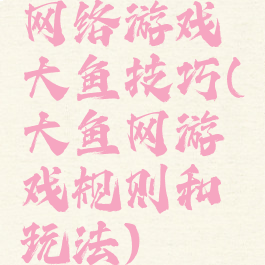 网络游戏
大鱼技巧(
大鱼网游
戏规则和
玩法)